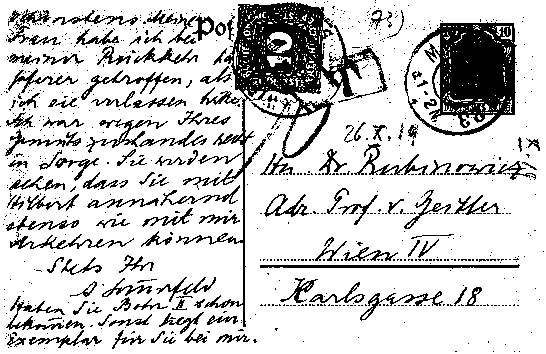 Meine
Frau habe ich bei
meiner Rückkehr
getroffen, als
ich sie verlassen hatte.
Ich war wegen Ihres
in Sorge. Sie werden
sehen, dass Sie mit
Hilbert annähernd
ebenso wie mit mir
verkehren können.
Stets Ihr
A Sommerfeld
Haben Sie Bohr II schon
bekommen. Sonst liegt ein
Exemplar für Sie bei mir.
Pos
10
T
10
26.X.19
Hn Dr Rubinowicz
Adr. Prof. v. Geitler
Wien IV
Karlsgasse 18